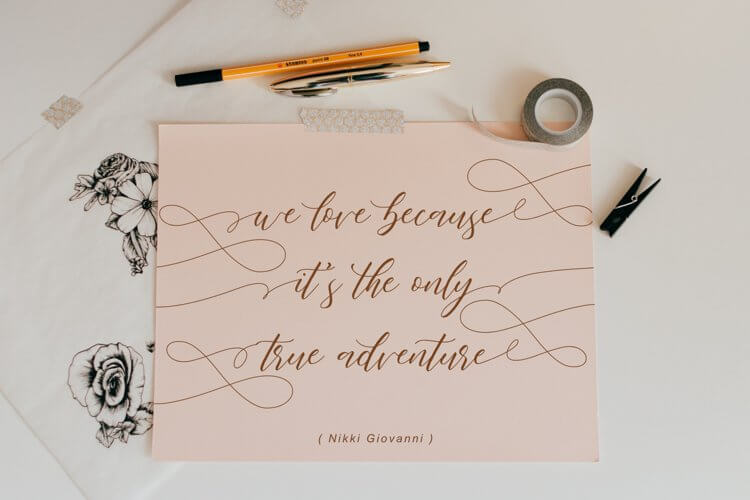 STABILO
we love because
it's the only
true adventure
( Nikki Giovanni )